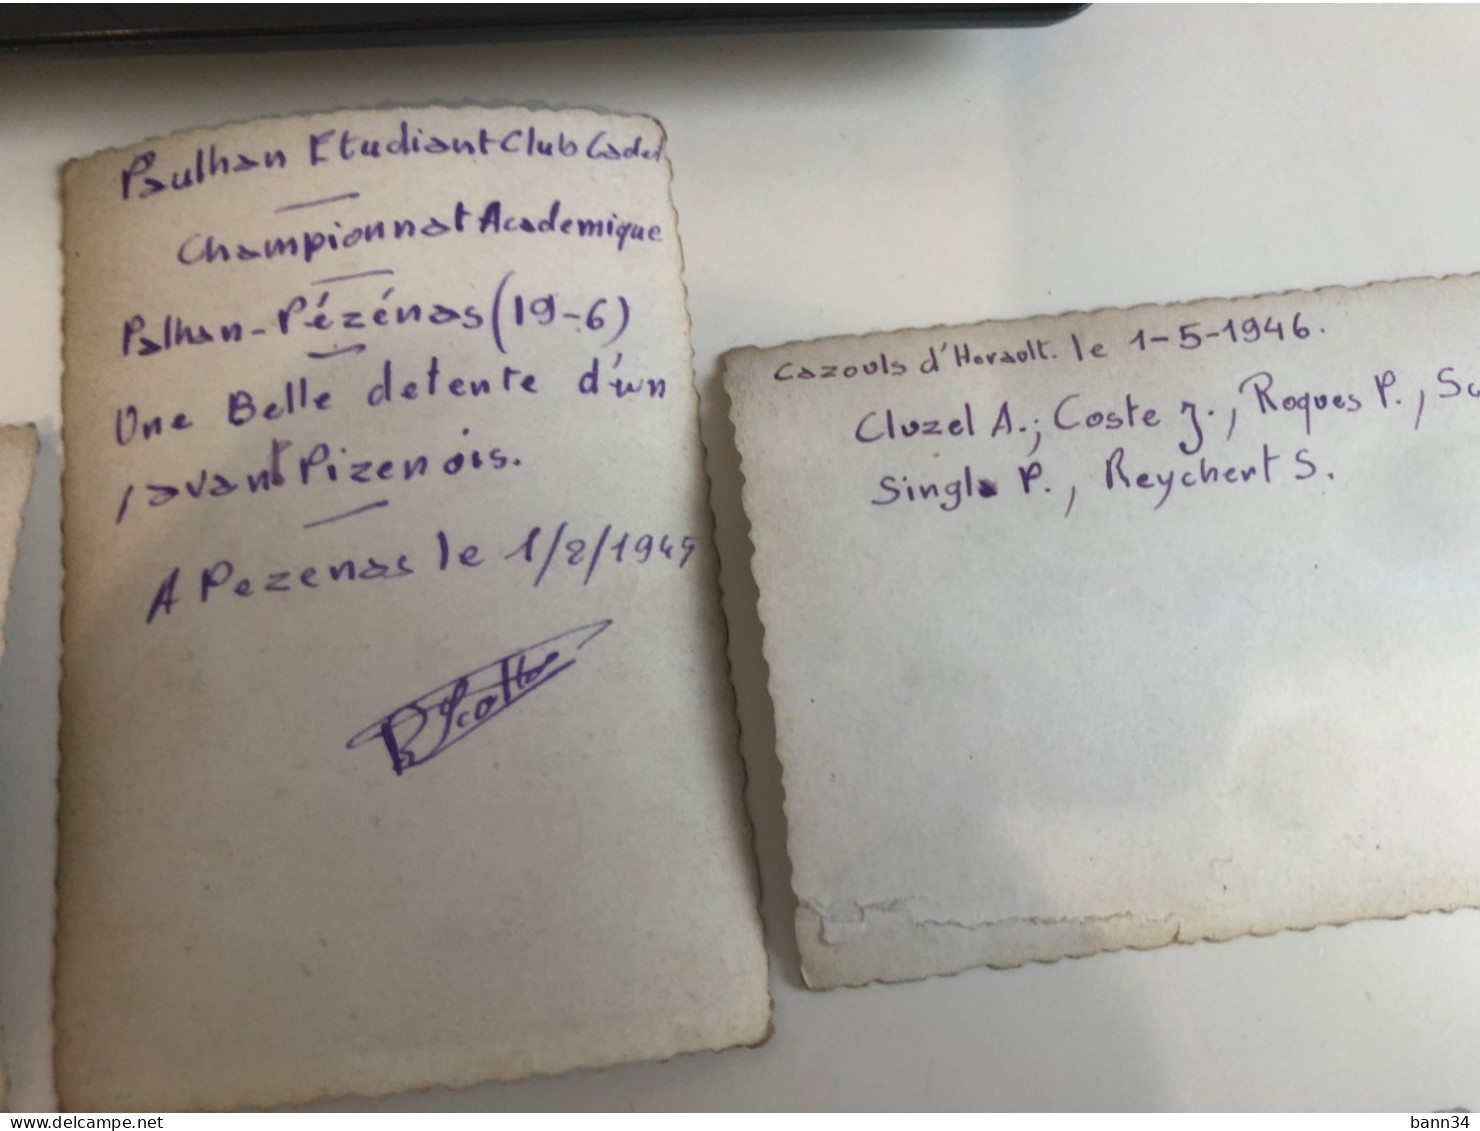 Paulhan Etudiant Club Cadet
Championnat Academique
Palhan-Pézénas (19-6)
Une Belle detente d'un
, avant Pizenois.
A Pezenas le 1/2/1945
B Scotto
Cazouls d'Herault. le 1-5-1946.
Cluzel A.; Coste J., Roques P.,
Singla P., Reychert S.
www.delcampe.net
bann34